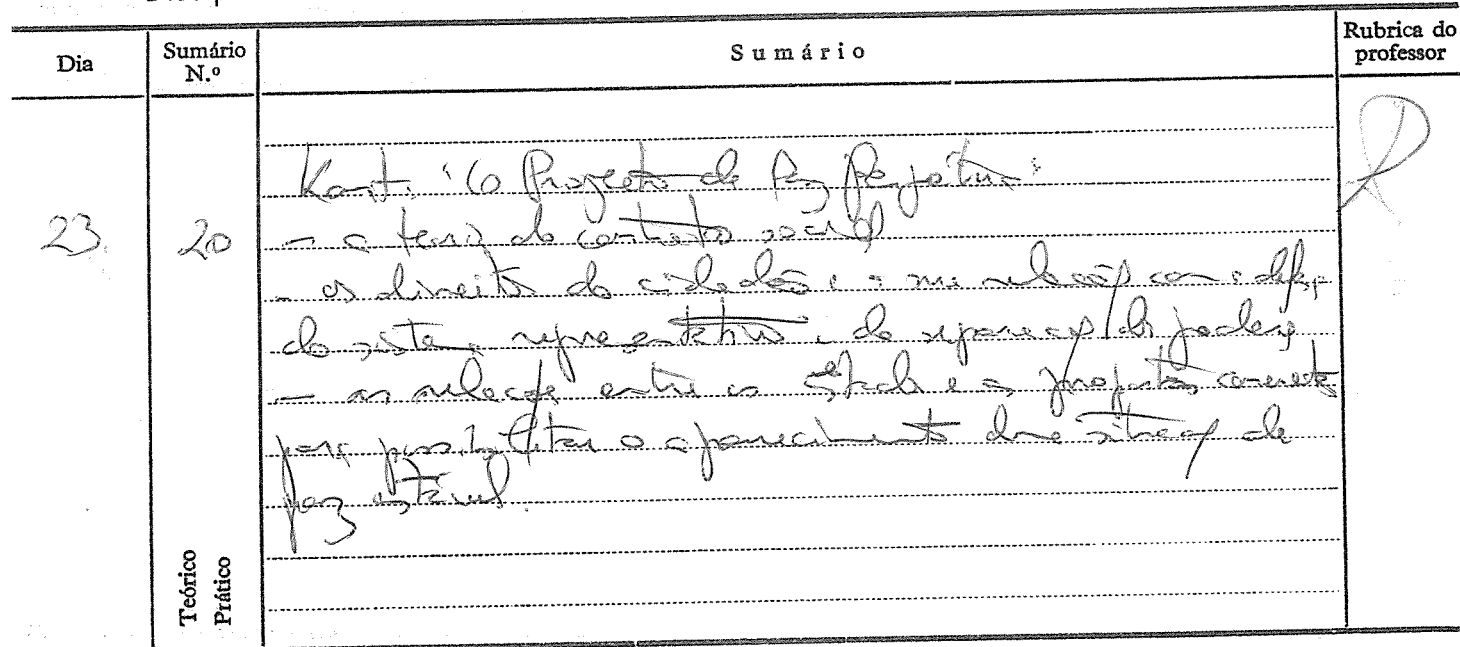 Dia
Sumário
N.º
Sumário
Rubrica do
professor
23
20
Kant: "O Projecto de Paz Perpétua"
- a teoria do contrato social
- os direitos do cidadão e a sua relação com a defesa
do sistema representativo e da separação de poderes
- as relações entre os Estados e as propostas concretas
para possibilitar o aparecimento duma situação de
paz estável.
Teórico
Prático